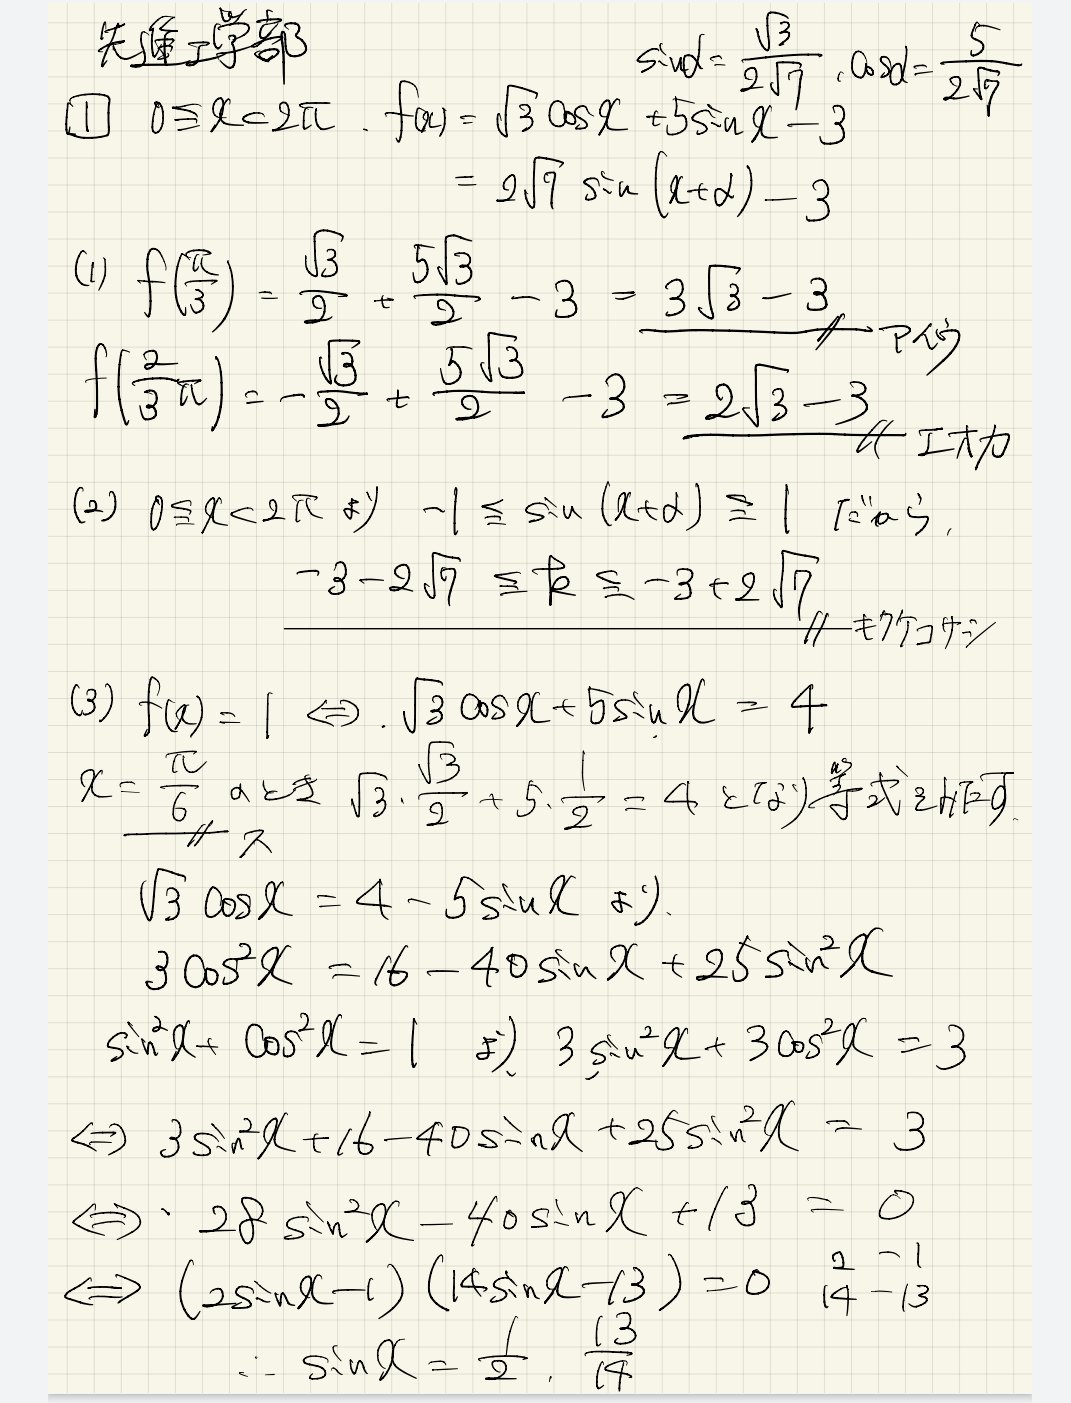 先進工学部
sinα = √3/2√7, cosα = 5/2√7
1 0≦x<2π. f(x) = √3 cosx + 5sinx − 3
= 2√7 sin(x+α) − 3
(1) f(π/3) = √3/2 + 5√3/2 − 3 = 3√3 − 3 アイウ
f(2/3 π) = −√3/2 + 5√3/2 − 3 = 2√3 − 3 エオカ
(2) 0≦x<2π より −1 ≦ sin(x+α) ≦ 1 だから,
−3−2√7 ≦ k ≦ −3+2√7 キクケコサシ
(3) f(x) = 1 ⇔ √3 cosx + 5sinx = 4
x = π/6 のとき √3・√3/2 + 5・1/2 = 4 となり等式を満たす.
ス
√3 cosx = 4 − 5sinx より.
3cos²x = 16 − 40sinx + 25sin²x
sin²x + cos²x = 1 より, 3sin²x + 3cos²x = 3
⇔ 3sin²x + 16 − 40sinx + 25sin²x = 3
⇔ 28sin²x − 40sinx + 13 = 0
⇔ (2sinx−1)(14sinx−13) = 0
2 −1
14 −13
∴ sinx = 1/2, 13/14